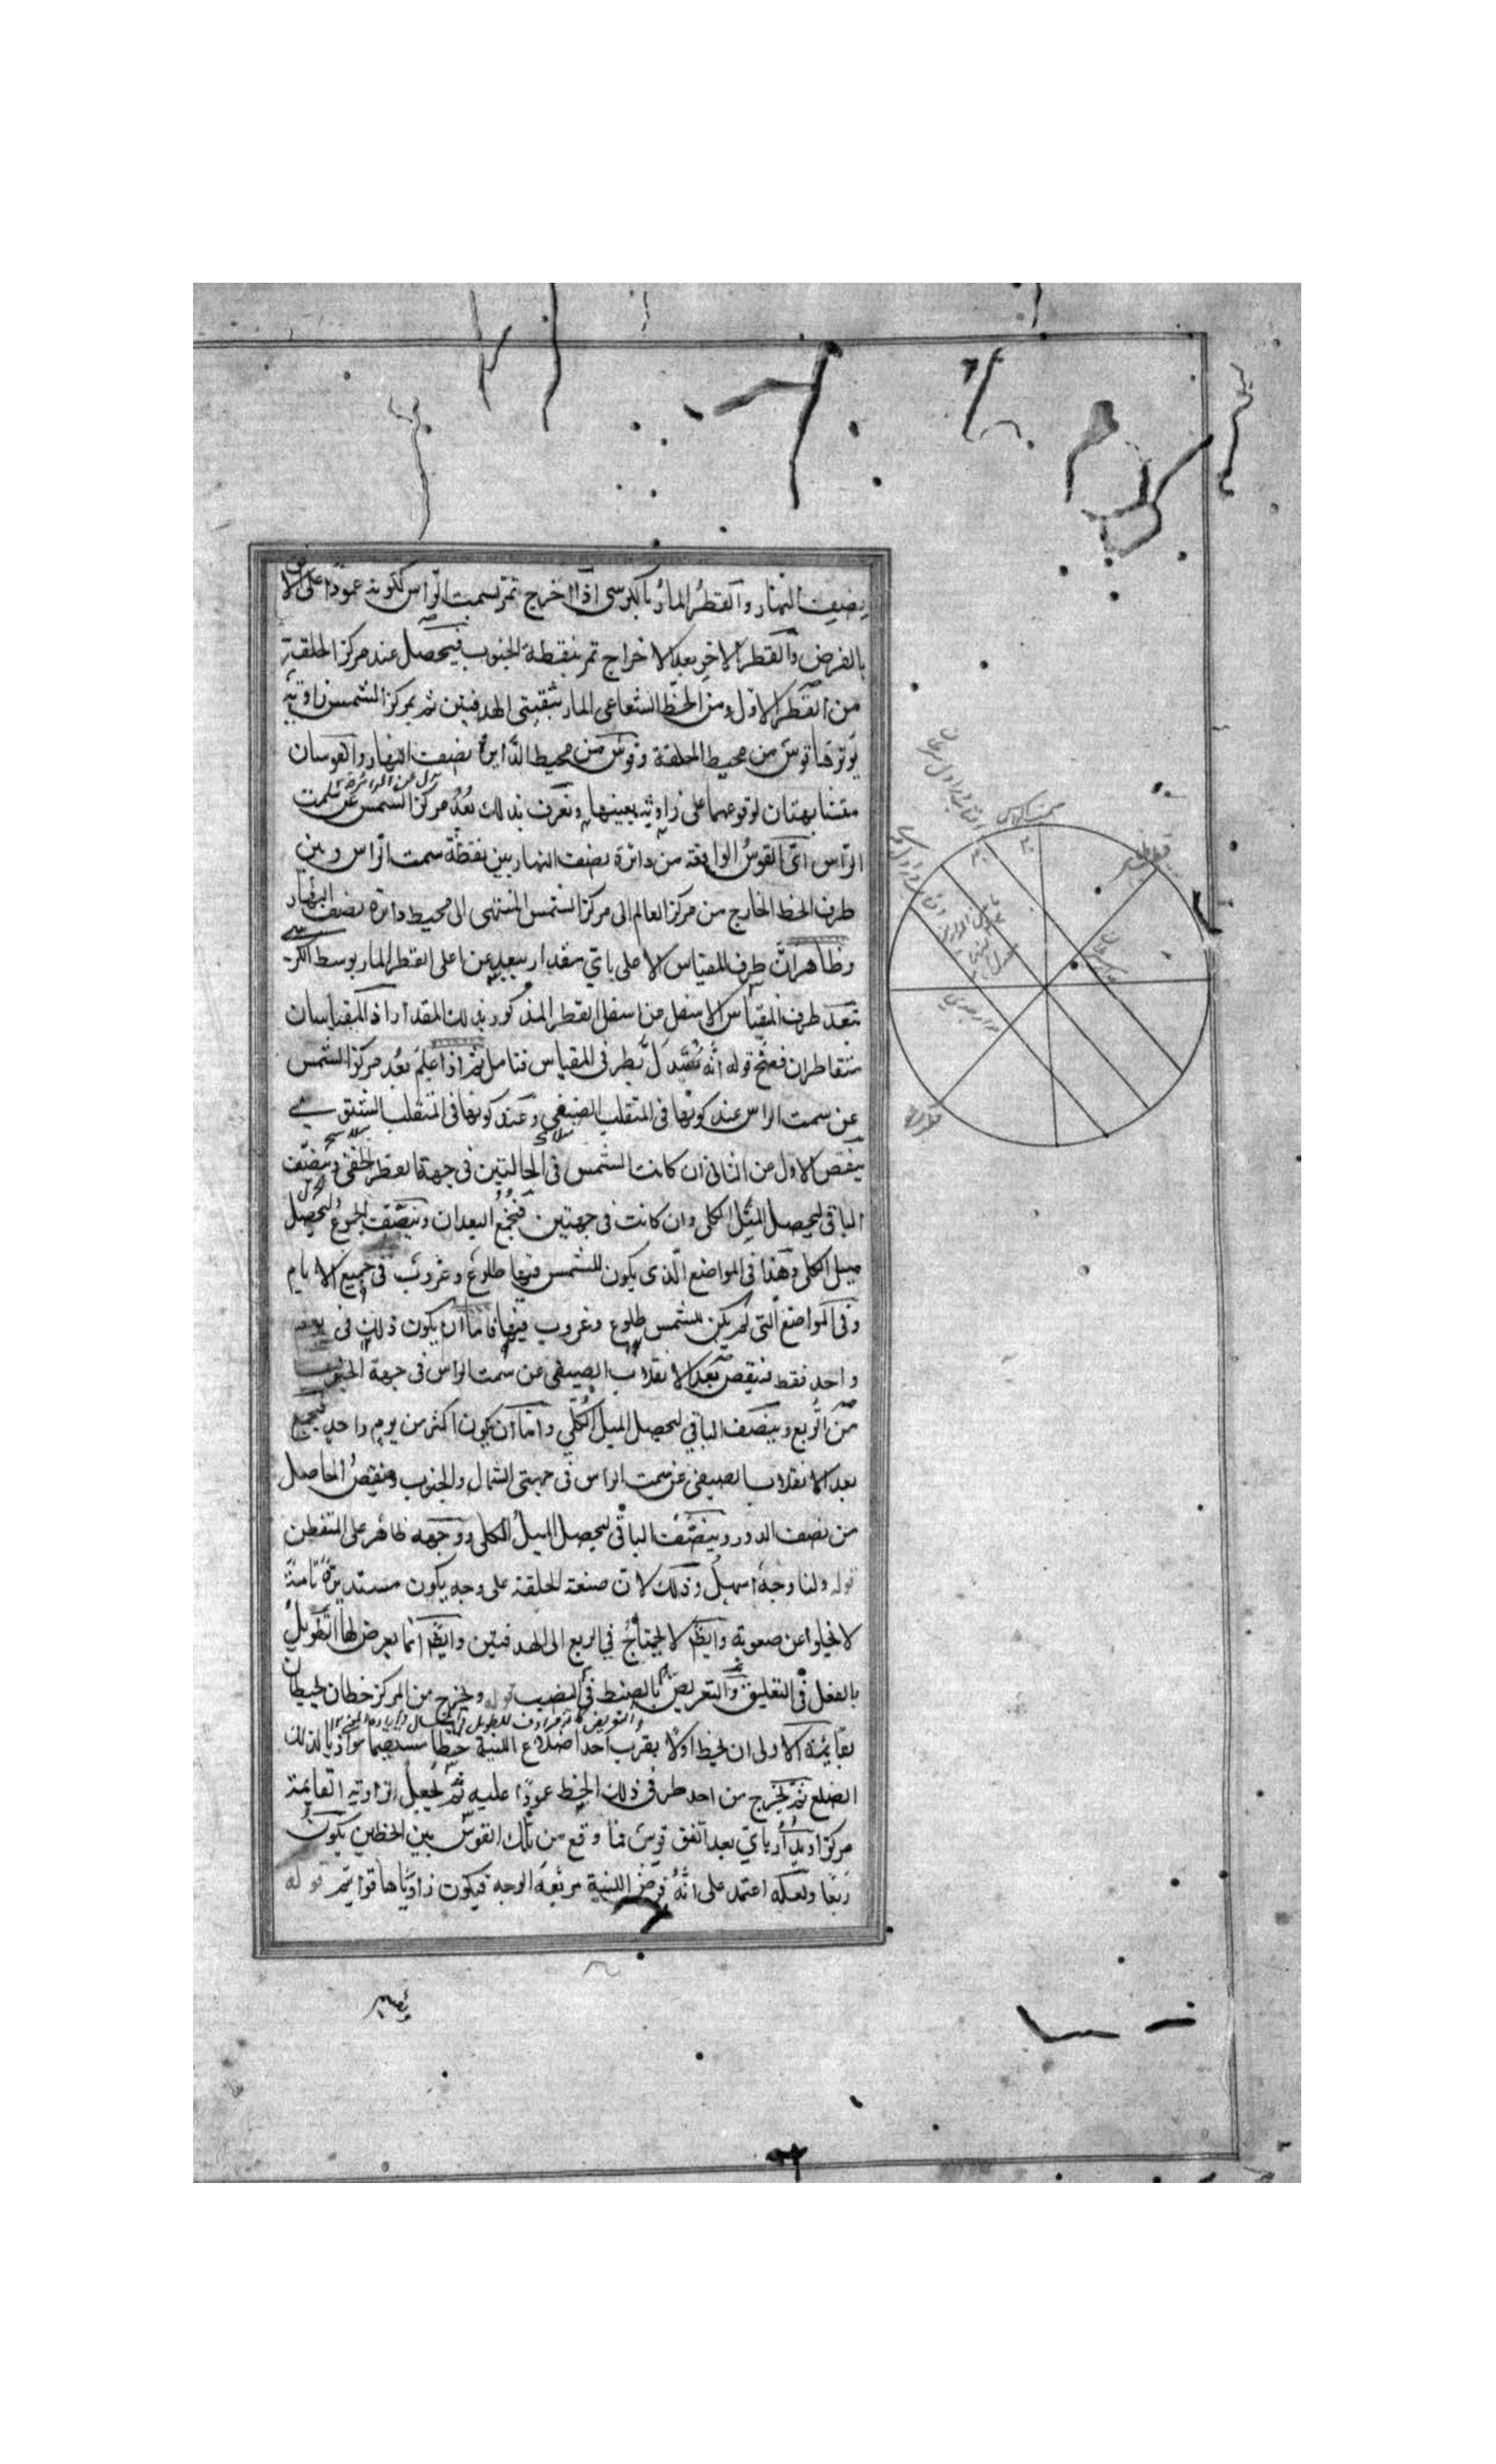 نصف النهار والقطر المار بالكرسى اذا اخرج تمر بسمت الراس لكونه عمودا على الافق
بالفرض والقطر الاخر بعد الاخراج تمر بنقطة الجنوب فيحصل عند مركز الحلقة
من القطر الاول ومن الخط الشعاعى المار بثقبتى الهدفتين ثم بمركز الشمس زاوية
يوترها قوس من محيط الحلقة وقوس من محيط الدايرة نصف النهار والقوسان
متشابهتان لوقوعهما على زاوية بعينها ونعرف بذلك بعد مركز الشمس عن سمت
الراس اى القوس الواقعة من دائرة نصف النهار بين نقطة سمت الراس وبين
طرف الخط الخارج من مركز العالم الى مركز الشمس المنتهى الى محيط دائرة نصف النهار
وظاهر ان طرف المقياس الاعلى باى مقدار يبعد عن اعلى القطر المار بوسط الكرسى
تبعد طرف المقياس الاسفل من اسفل القطر المذكور بذلك المقدار اذ المقياسان
متقاطران فصح قوله انه بطرفى المقياس فتامل ثم اذا علم بعد مركز الشمس
عن سمت الراس عند كونها فى المنقلب الصيفى وعند كونها فى المنقلب الشتوى
ينقص الاول من الثانى ان كانت الشمس فى الحالتين فى جهة القطر الخفى وينصف
الباقى ليحصل الميل الكلى وان كانت فى جهتين فيجمع البعدان وينصف المجموع ليحصل
ميل الكلى وهذا فى المواضع الذى يكون للشمس فيها طلوع وغروب فى جميع الايام
وفى المواضع التى لم يكن للشمس طلوع وغروب فيها فاما ان يكون ذلك فى يوم
واحد فقط فينقص بعد الانقلاب الصيفى عن سمت الراس فى جهة الجنوب
من الربع وينصف الباقى ليحصل الميل الكلى واما ان يكون اكثر من يوم واحد فيجمع
بعد الانقلاب الصيفى عن سمت الراس فى جهتى الشمال والجنوب وينقص الحاصل
من نصف الدور وينصف الباقى ليحصل الميل الكلى ووجهه ظاهر على المتفطن
قوله ولنا وجه اسهل وذلك لان صنعة الحلقة على وجه يكون مستديرة تامة
لا يخلوا عن صعوبة وايضا لا يحتاج فى الربع الى الهدفتين وايضا انما يعرض لها التطويل
بالفعل فى التعليق والتعريض بالضبط فى النصب قوله ويخرج من المركز خطان يحيطان
بقايمة الاولى ان يخط اولا بقرب احد اضلاع اللبنة خطا مستقيما موازيا لذلك
الضلع ثم يخرج من احد طرفى ذلك الخط عمودا عليه ثم يجعل الزاوية القايمة
مركزا ويدار باى بعد اتفق قوس فما وقع من تلك القوس بين الخطين يكون
ربعا ولعله اعتمد على انه فرض اللبنة مربعة الوجه فيكون زاوياها قوايم قوله
سمت الراس